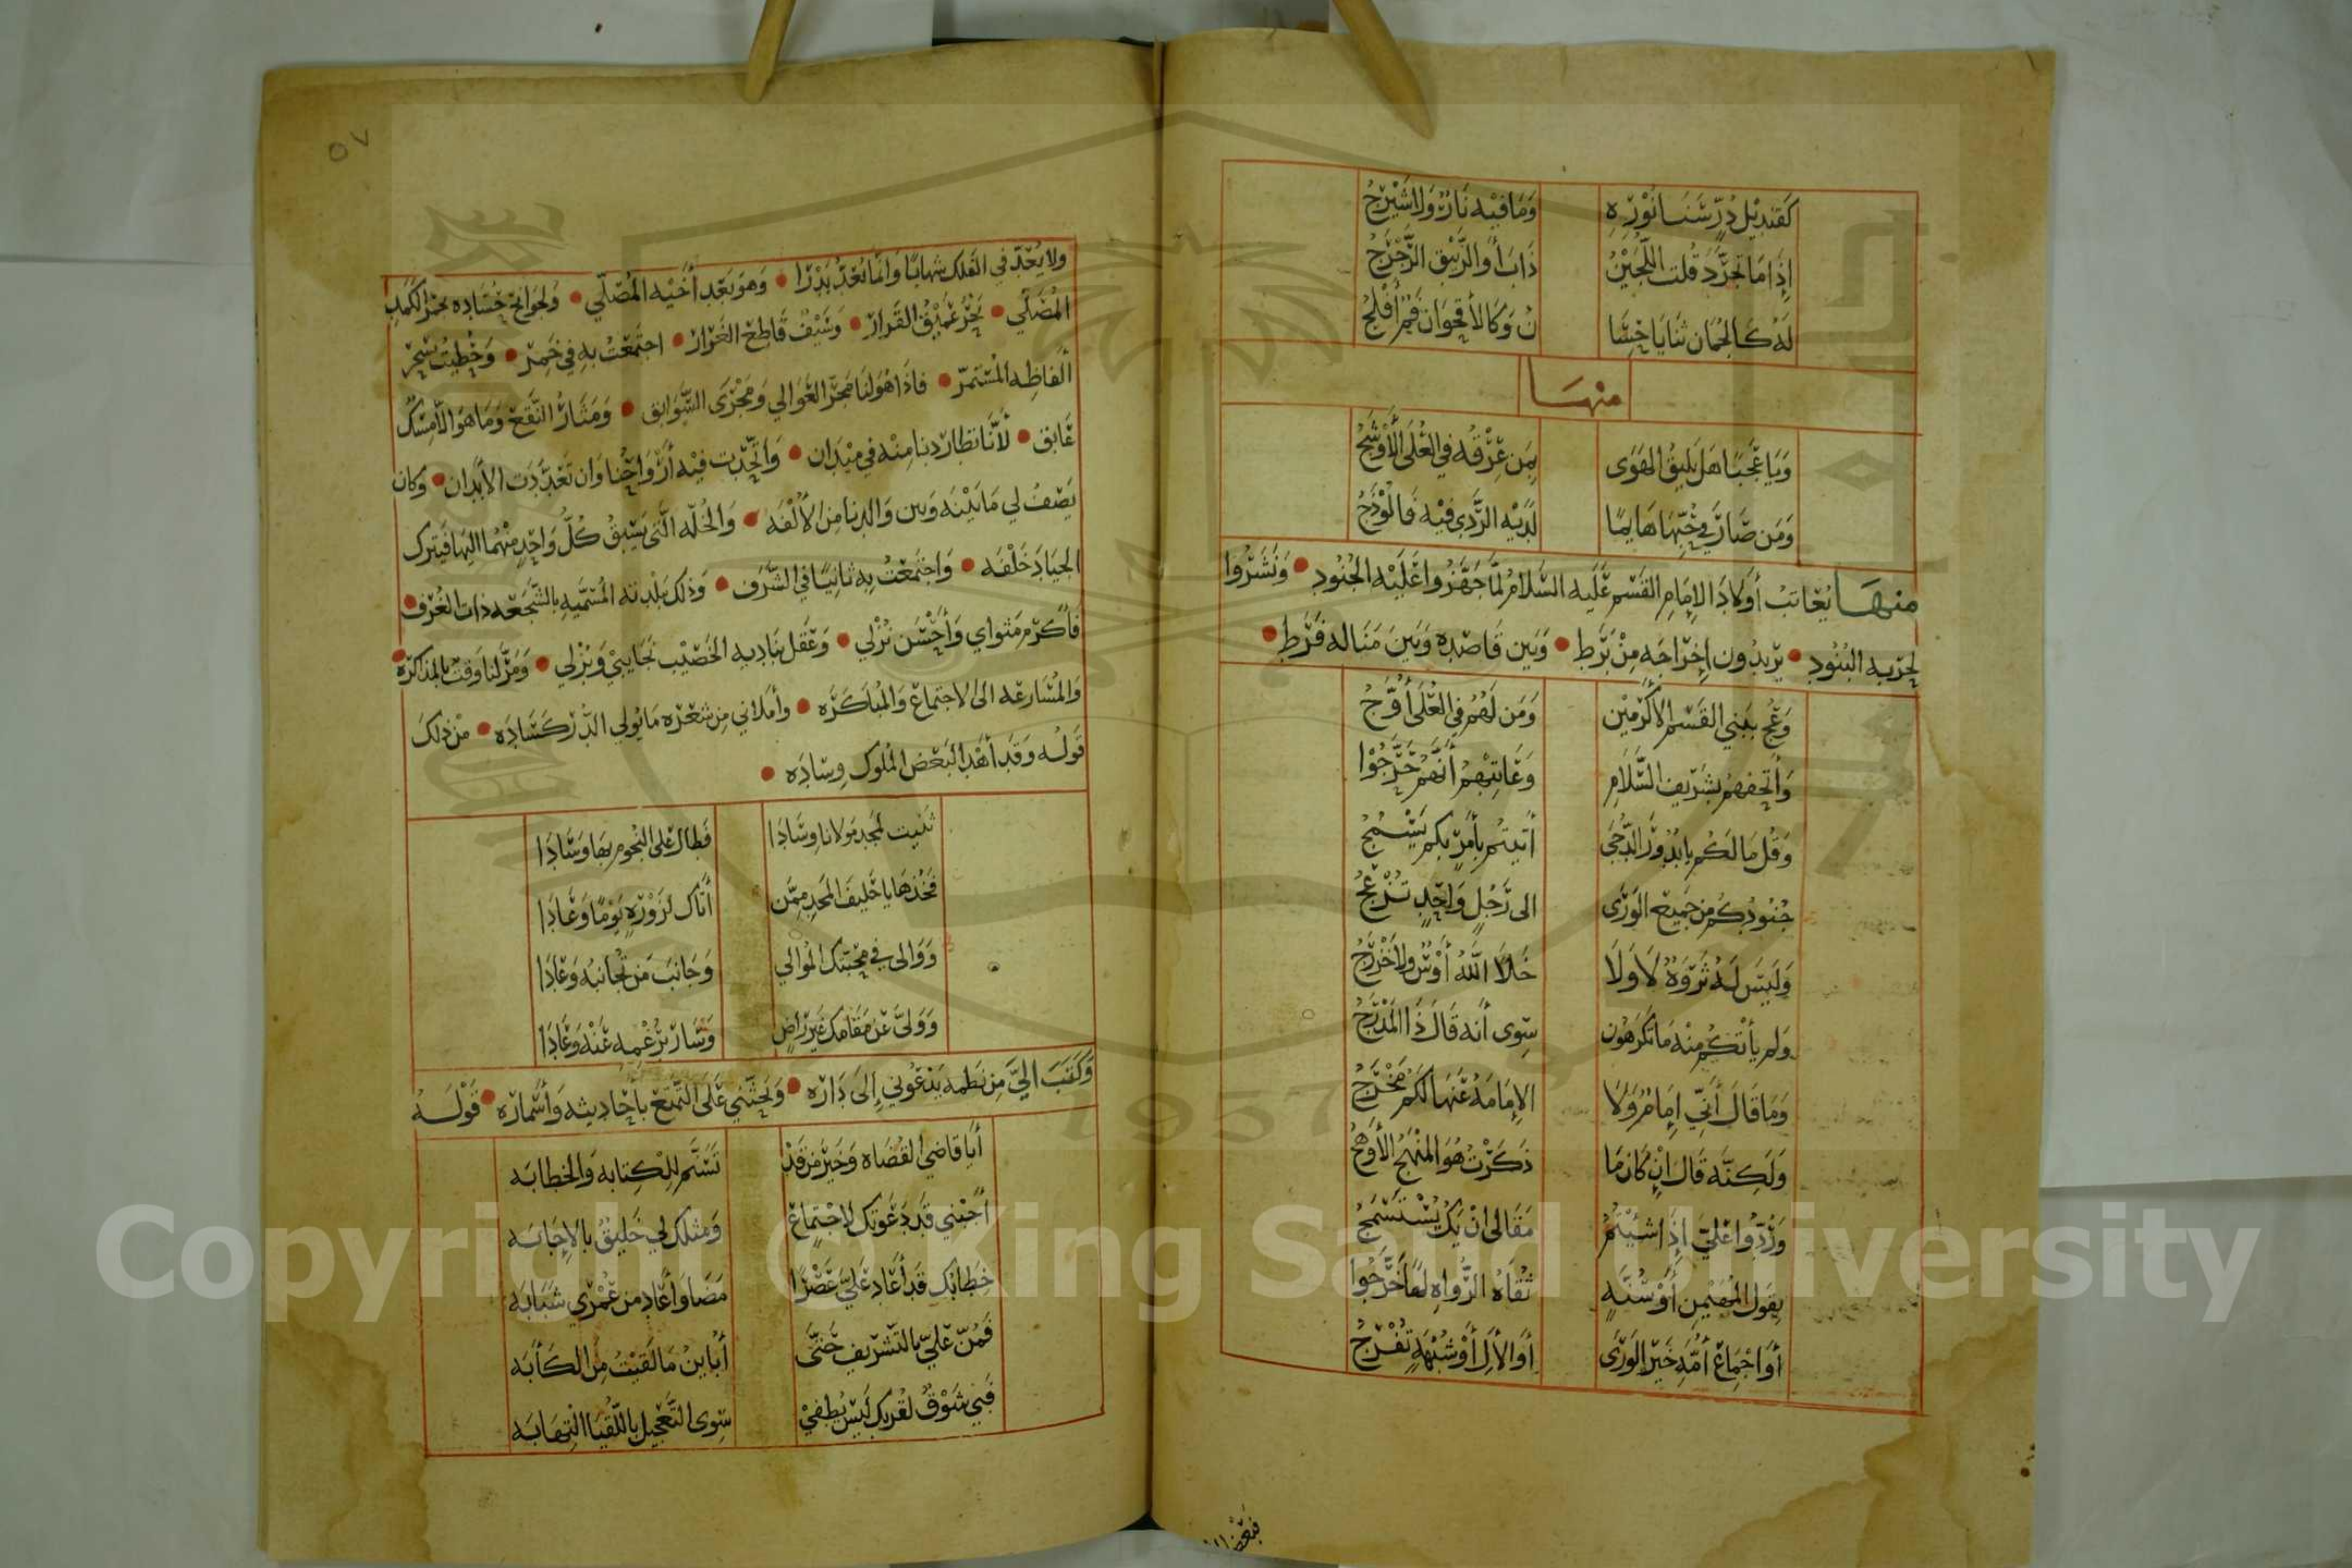 كَقنديل دُرّ سَنا نوْره وَمَا فيْه نَارٌ وَلا شيْرجُ
إِذا مَا تجرَّد قُلت اللّجيْنُ ذَابَ أَو الزّيبق الرَّجْرَجُ
لهُ كالجُمان ثنَايَا حسَا نٌ وَكالأقحوَان فمٌ أفلجُ
منهَا
وَيَا عَجبًا هَل يليقُ الهَوَى بمَن عِرْقُه في العُلَى الأَوْشجُ
وَمَن صَارَ في حُبّهَا هَايمًا لدَيْه الرَّدى فيْه فَالوْذجُ
منهَا يُعَاتبُ أَولادَ الإمَام القسم عَليه السَّلامُ لمَّا جَهّزُوا عَليْه الجُنُود وَنشرُوا
لحربه البُنُود يريدُون إخرَاجَه مِنْ بَرَط وَبَين قَاصده وَبَينَ مَنَاله فَرَط
وَعُج ببَني القسم الأكرَمين وَمَن لَهُم في العُلَى أَوَّجُ
وَأتحفهم بشَريف السَّلام وَعَاتبْهمُ أنَّهم حَرَّجُوْا
وَقُل مَا لكُم يا بُدوْرَ الدُّجَى أتيتُم بأمرٍ بكم يَسْمُجُ
جُنُودكُم من جَميع الوَرَى الى رَجُلٍ وَاحدٍ تُزعجُ
وَليسَ لهُ ثروَةٌ لَا وَلَا خَلا اللهُ أوْسٌ ولا خَزرَجُ
ولم يأتكُم منْه مَا تكرَهُون سوى أنه قَالَ ذَا المَدْرَجُ
وَمَا قَالَ أنّي إمَامٌ وَلَا الإمَامَةُ عَنهَا لكُم مَخْرَجُ
وَلكنَّه قَال إن كَان مَا ذكَرْتُ هُوَ المنْهَج الأَوهجُ
وَرُدّوا عَليّ إذَا شئتُمُ مَقَالى انْ يَكُ يُسْتسْمَجُ
بقول المُهَيْمن أَوْ سُنَّةٍ ثقَاةُ الرُّوَاه لهَا خَرَّجُوا
أوَ اجْمَاع أمّه خَير الوَرَى أو الأل أَوْ شُبْهَةٍ تُفْرجُ
٥٧
ولا يُعَدّ في الفلك شهابًا وَانمَا يُعَدّ بَدْرًا وَهوَ بَعد أخيْه المُصَلّي وَلجوَانح حُسّاده بحمر الكمد
المُصَلّي بَحْرٌ عَميْق القَرار وَسَيْفٌ قَاطع الغَرَار اجتمعْتُ به في خَمِر وَحُظيْتُ بسَحَر
ألفاظه المُستمرّ فاذَا هُوَ لنَا مَجَرّ العَوَالي وَمَجْرَى السّوَابق وَمَثَارُ النَّقع وَمَا هُوَ الَّا مسْكٌ
عَابق لأنَّا تطَاردنا منْه في ميْدان وَاتّحدت فيْه أروَاحُنا وَان تَعَدَّدت الأبدان وَكان
يَصفُ لي مَا بَيْنَه وَبين وَالدنا من الأُلْفه وَالخُلّه الّتى يَسْبقُ كُلّ وَاحدٍ منْهُما اليْها فَيترك
الجيَادَ خَلْفَه وَاجْتمعْتُ به ثَانيًا في الشّرَف وَذلك ببَلْدته المُسَمّيه بالشّجعه ذات الغُرف
فَأكرَم مَثوَاي وَأحْسَن نُزْلي وَعَقل بنَاديه الخَصيْب نجَايبي وَبُزلي وَمَرّ لنا وَقت بالمذاكرَه
وَالمُسَارعَه الى الاجتمَاع وَالمُبَاكرَه وأملاني من شعْره مَا يُولي الدّر كسَادَه منْ ذلكَ
قَولُه وَقد أهْدَا لبَعْض المُلوك وسَادَه
ثنيت لمجد مَولانا وسَادَا فَطال عَلى النّجوم بها وَسَادَا
فَخُذهَا يا حَليفَ المَجد ممَّن أتاك لزَوْرةٍ يَومًا وَعَادَا
وَوَالى في مَحبتكَ المُوَالي وَجَانبَ مَن تُجَانبُه وَعَادَا
وَوَلّى عَن مَقَامك غَير رَاضٍ وَسَارَ برُغمه عَنْهُ وَعَادَا
وَكَتبَ اليَّ من نَظمه يَدْعُوني إلى دَاره وَيَحثّني عَلَى التّمتع بأحَاديثه وَأسْمَاره قَوْلَهُ
أيَا قاضي القُضاه وَخَيْرَ مَن قَدْ تسَنّم للكتابه وَالخطابَه
أجبْني قَد دَعَوتك لاجْتماع وَمثلك لي خَليقٌ بالإجَابَه
خطَابُك قَد أعَاد عَليّ عَصْرًا مَضَا وَأعَاد من عُمْري شبَابَه
فَمُنّ عَليّ بالتَّشريف حَتَّى أبَاينُ مَا لَقيْتُ من الكأبَه
فَبي شَوْقٌ لقُربك لَيْسَ يُطفيْ سوَى التَّعْجيل باللّقيَا التهَابَه
Copyright © King Saud University
1957